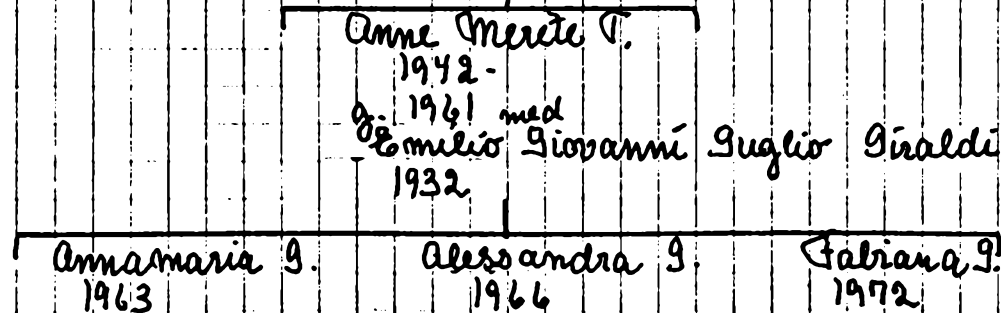 Anne Merete T.
1942-
g. 1961 med
Emilio Giovanni Guglio Giraldi
1932
Annamaria G.
Alessandra G.
Fabiana G.
1963
1966
1972